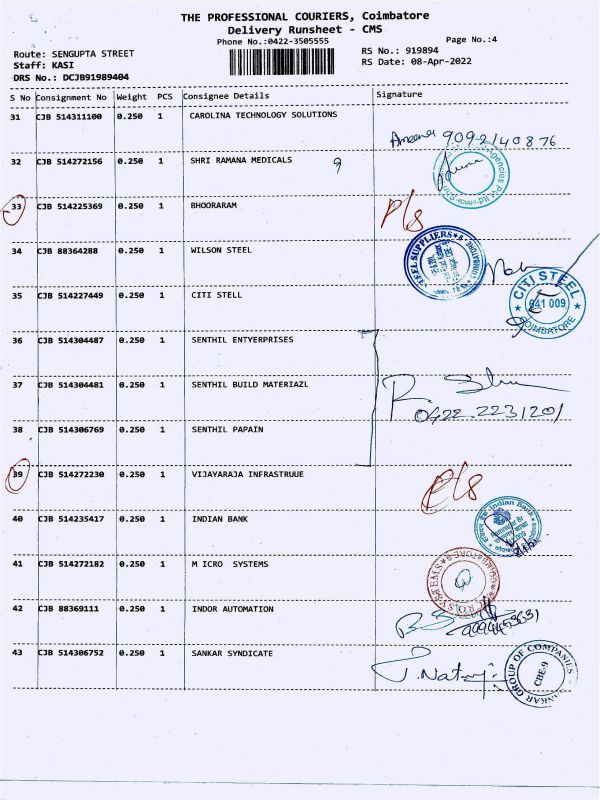 THE PROFESSIONAL COURIERS, Coimbatore
Delivery Runsheet - CMS
Phone No.:0422-3505555
Page No.:4
Route: SENGUPTA STREET
RS No.: 919894
Staff: KASI
RS Date: 08-Apr-2022
DRS No.: DCJB91989404
S No Consignment No Weight PCS Consignee Details Signature
31 CJB 514311100 0.250 1 CAROLINA TECHNOLOGY SOLUTIONS
9092140876
32 CJB 514272156 0.250 1 SHRI RAMANA MEDICALS 9
33 CJB 514225369 0.250 1 BHOORARAM P/s
34 CJB 88364288 0.250 1 WILSON STEEL
STEEL SUPPLIERS
35 CJB 514227449 0.250 1 CITI STELL
CITI STEEL
641 009
COIMBATORE
36 CJB 514304487 0.250 1 SENTHIL ENTYERPRISES
37 CJB 514304481 0.250 1 SENTHIL BUILD MATERIAZL
0422.2231201
38 CJB 514306769 0.250 1 SENTHIL PAPAIN
39 CJB 514272230 0.250 1 VIJAYARAJA INFRASTRUUE P/s
40 CJB 514235417 0.250 1 INDIAN BANK
Indian Bank
41 CJB 514272182 0.250 1 M ICRO  SYSTEMS
42 CJB 88369111 0.250 1 INDOR AUTOMATION
43 CJB 514306752 0.250 1 SANKAR SYNDICATE
SANKAR GROUP OF COMPANIES
CBE-9